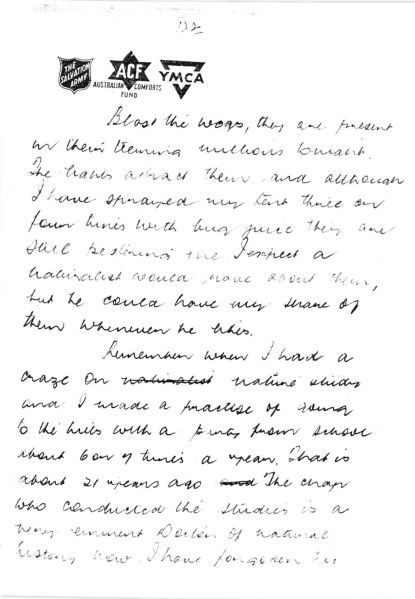 132
THE SALVATION ARMY
ACF
AUSTRALIAN COMFORTS FUND
YMCA
Blast the wogs, they are present
in their teeming millions tonight.
The lights attract them and although
I have sprayed my tent three or
four times with bug juice they are
still pestering me I expect a
naturalist would rave about them,
but he could have my share of
them whenever he likes.
Remember when I had a
craze on naturalist nature study
and I made a practise of going
to the hills with a party from school
about 6 or 7 times a year. That is
about 21 years ago and The chap
who conducted the studies is a
very eminent Doctor of natural
history now. I have forgotten his